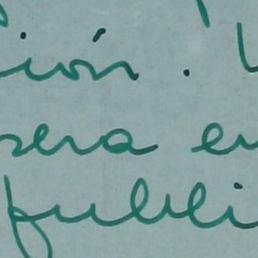 ión.
sera en
publi